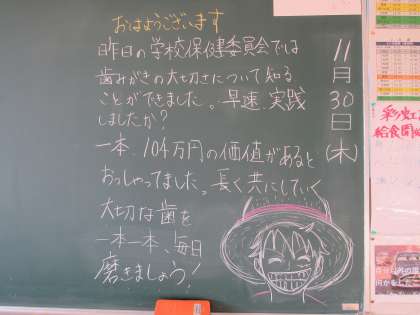 おはようございます
昨日の学校保健委員会では
歯みがきの大切さについて知る
ことができました。早速、実践
しましたか?
一本、104万円の価値があると
おっしゃってました。長く共にしていく
大切な歯を
一本一本、毎日
磨きましょう!
11月30日(木)
彩虹
給食開始